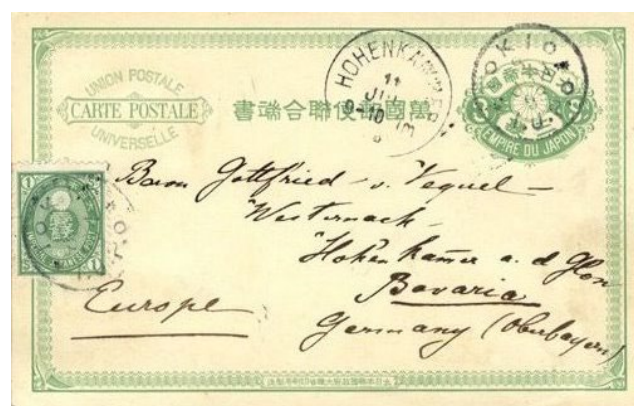 UNION POSTALE
CARTE POSTALE
UNIVERSELLE
書端合聯便郵國萬
HOHENKAMMER
11
JUL
9-10
TOKIO
EMPIRE DU JAPON
1
1
Baron Gottfried v. Vequel-
Westernach
Hohenkamer a. d Glon
Bavaria
Germany (Oberbayern)
Europe